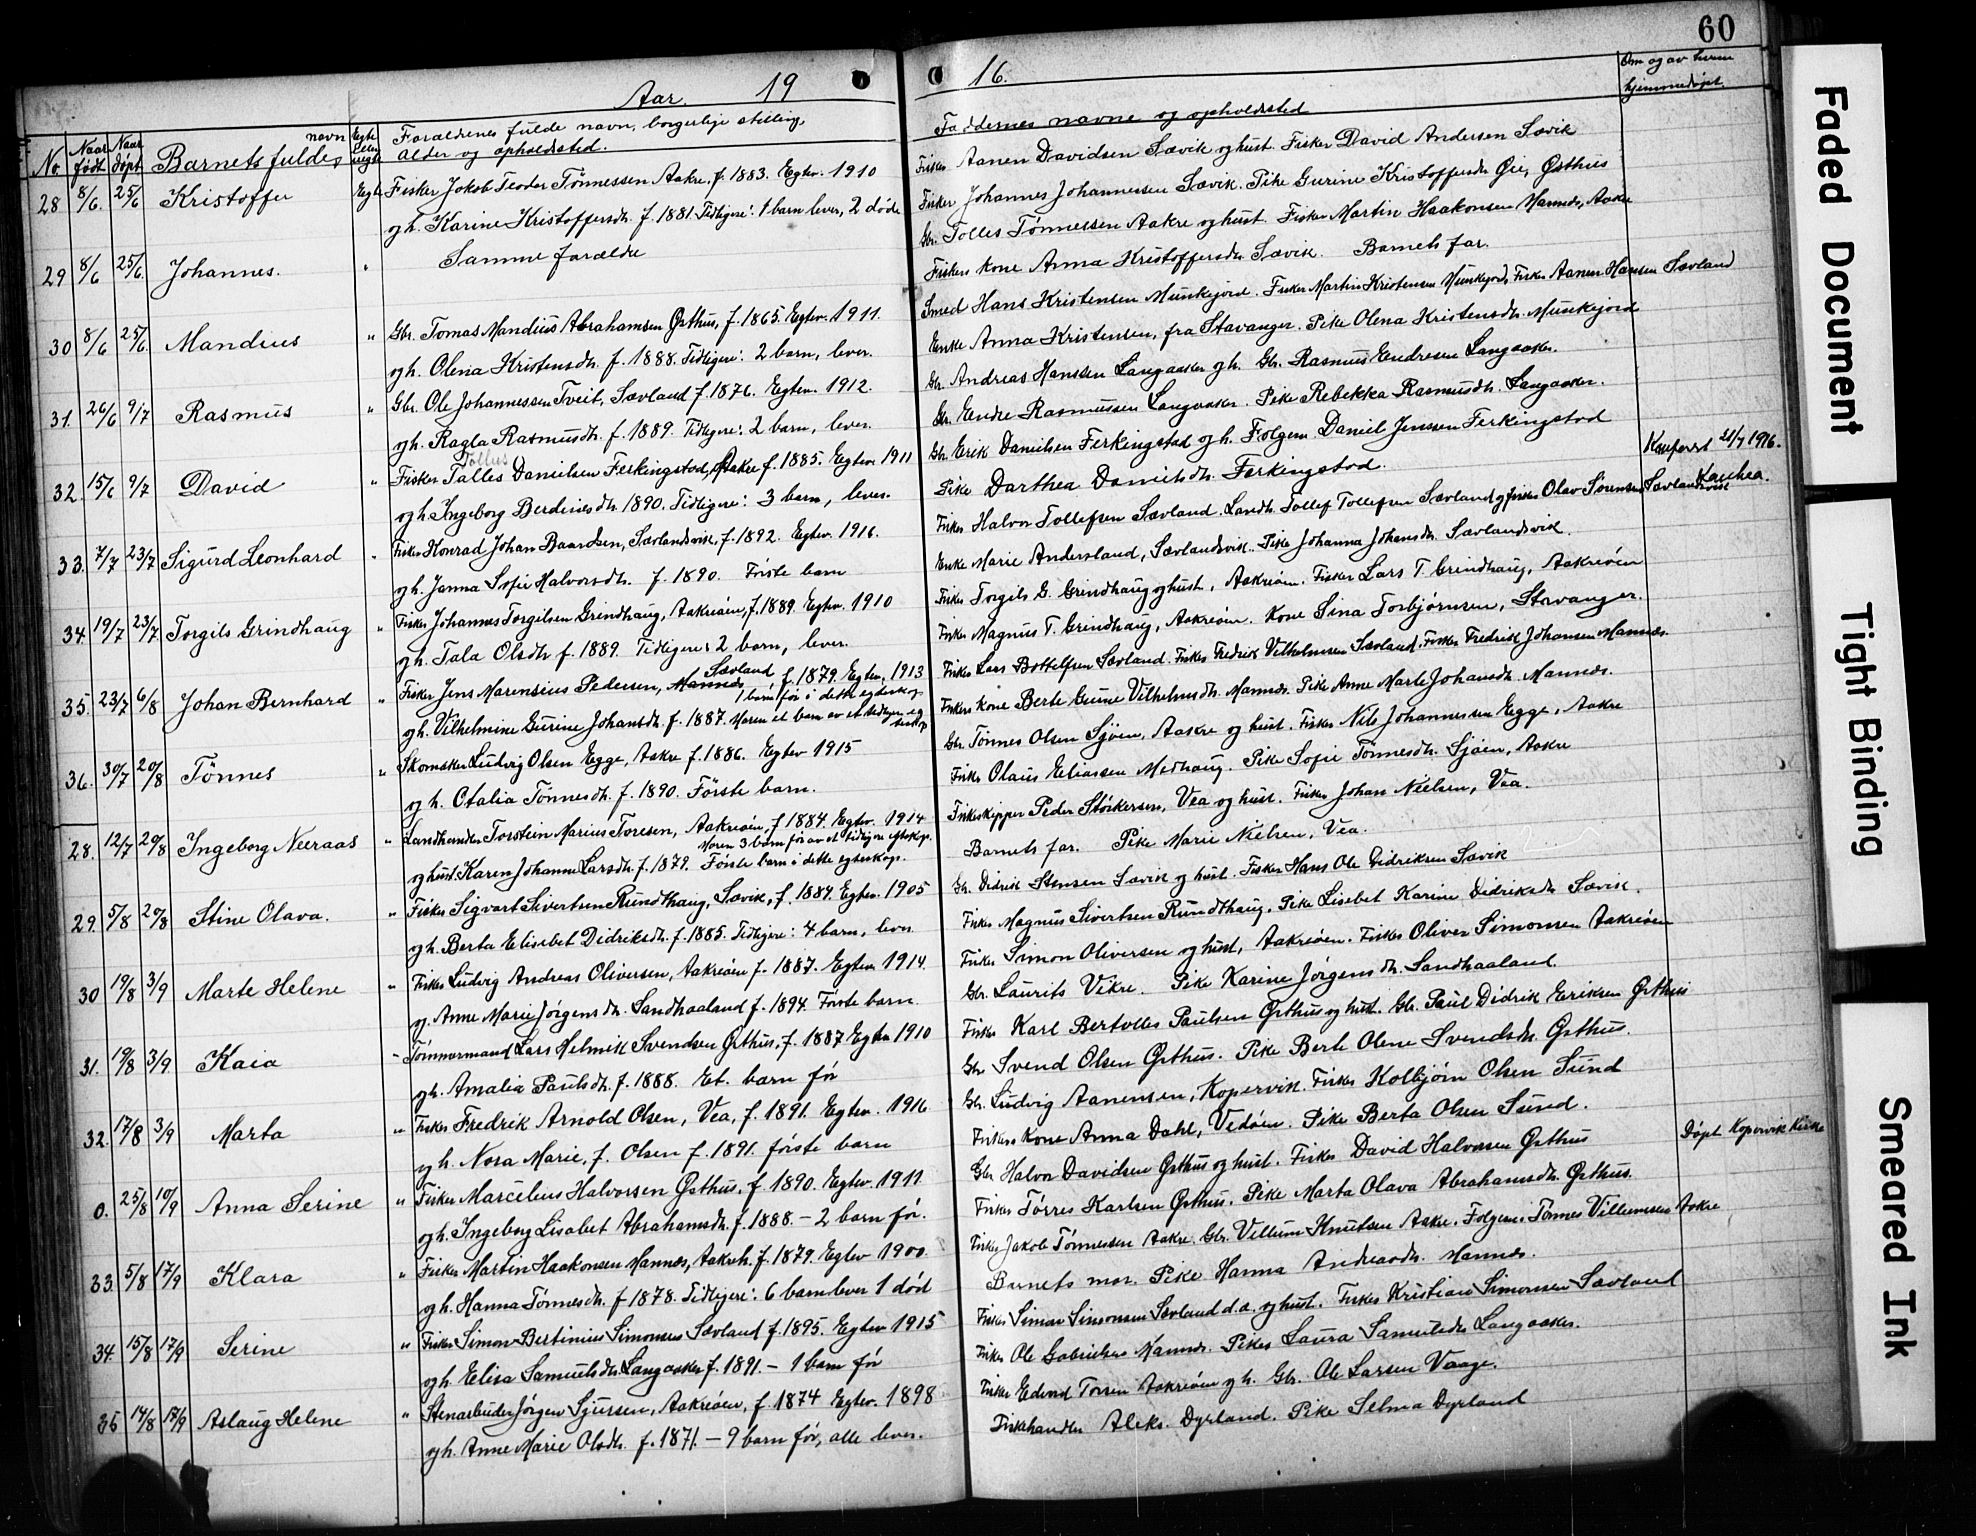 60
Aar. 19 16.
Om og av hvem
hjemmedøpt.
No Naar født Naar døpt Barnets fulde navn Egte eller uegte Forældrenes fulde navn, borgerlige stilling, Faddernes navne og opholdssted
alder og opholdssted.
28 8/6. 25/6 Kristoffer Egte Fisker Jakob Teodor Tønnessen Aakre, f. 1883. Egtev. 1910 Fisker Aanen Davidsen Sævik og hust. Fisker David Andersen Sævik
og h. Karine Kristoffersdtr. f. 1881. Tidligere: 1 barn lever, 2 døde Fisker Johannes Johannessen Sævik. Pike Gurine Kristoffersdtr Øie, Østhus
29 8/6 25/6. Johannes. " Samme forældre Gbr. Tolles Tønnessen Aakre og hust. Fisker Martin Haakonsen Mannes, Aakre
Fiskers kone Anna Kristoffersdtr Sævik. Barnets far.
30 8/6 25/6. Mandius " Gbr. Tomas Mandius Abrahamsen Østhus, f. 1865. Egtev. 1911. Smed Hans Kristensen Munkejord. Fisker Martin Kristensen Munkejord, Fisker Aanen Hansen Sævland
og h. Olena Kristensdtr. f. 1888. Tidligere: 2 barn, lever. Enke Anna Kristensen, fra Stavanger. Pike Olena Kristensdtr. Munkejord
31. 26/6 9/7 Rasmus " Gbr. Ole Johannessen Tveit, Sævland f. 1876. Egtev. 1912. Gbr. Andreas Hansen Langaaker og h. Gbr. Rasmus Endresen Langaaker.
og h. Ragla Rasmusdtr. f. 1889. Tidligere: 2 barn, lever. Gbr. Endre Rasmussen Langaaker. Pike Rebekka Rasmusdtr. Langaaker.
Tollus
32. 15/6 9/7 David " Fisker Talles Danielsen Ferkingstad, Aakre f. 1885. Egtev. 1911 Gbr. Erik Danielsen Ferkingstad og h. Folgem. Daniel Jenssen Ferkingstad
og h. Ingeborg Berdinesdtr. 1890. Tidligere: 3 barn, lever. Pike Darthea Danielsdtr. Ferkingstad. 21/7 1916.
33. 7/7 23/7 Sigurd Leonhard " Fisker Konrad Johan Baardsen, Sævlandsvik, f. 1892. Egtev. 1916. Fisker Halvor Tollefsen Sævland. Landh. Tollef Tollefsen Sævland og fisker Olav Sørensen Sævlandsvik
og h. Janna Sofie Halvorsdtr. f. 1890. Første barn Enke Marie Andersland, Sævlandsvik. Pike Johanna Johansdtr. Sævlandsvik.
34. 19/7 23/7 Torgils Grindhaug " Fisker Johannes Torgilsen Grindhaug, Aakreøen, f. 1889. Egtev. 1910 Fisker Torgils G. Grindhaug og hust, Aakreøen. Fisker Lars T. Grindhaug, Aakreøen
og h. Tala Olsdtr f. 1889. Tidligere: 2 barn, lever. Fisker Magnus T. Grindhaug, Aakreøen. Kone Sina Torbjørnsen, Stavanger.
35. 23/7 6/8 Johan Bernhard " Fisker Jens Marensius Pedersen, Mannes Sævland f. 1879. Egtev. 1913 Fisker Lars Bottelfsen Sævland. Fisker Fredrik Vilhelmsen Sævland, Fisker Fredrik Johansen Mannes.
1 barn før i dette egteskap
og h. Vilhelmine Gurine Johansdtr. f. 1887. Moren et barn av et tidligere egteskap Fiskers kone Berte Gurine Vilhelmsdtr. Mannes. Pike Anne Marte Johansdtr Mannes.
36. 30/7 20/8 Tønnes " Skomaker Ludvig Olsen Egge, Aakre f. 1886. Egtev 1915 Gbr. Tønnes Olsen Sjøen, Aakre og hust. Fisker Nils Johannessen Egge, Aakre
og h. Otalia Tønnesdtr. f. 1890. Første barn. Fisker Olaus Eliassen Medhaug. Pike Sofie Tønnesdtr. Sjøen, Aakre
28. 12/7 20/8 Ingeborg Neeraas " Landhandler Torstein Marius Toresen, Aakreøen, f. 1884. Egtev. 1914 Fiskeskipper Peder Størkersen, Vea og hust. Fisker Johan Nielsen, Vea.
Moren 3 barn før av et tidligere egteskap.
og hust. Karen Johanne Larsdtr. f. 1879. Første barn i dette egteskap. Barnets far. Pike Marie Nielsen, Vea.
29. 5/8 20/8 Stine Olava. " Fisker Sigvart Sivertsen Rundthaug, Sævik, f. 1884. Egtev. 1905 Gbr. Didrik Stensen Sævik og hust. Fisker Hans Ole Didriksen Sævik
og h. Berta Elisebet Didriksdtr. f. 1885. Tidligere: 4 barn, lever Fisker Magnus Sivertsen Rundthaug. Pike Lisebet Karine Didriksdtr Sævik.
30 19/8 3/9 Marte Helene " Fisker Ludvig Andreas Oliversen, Aakreøen f. 1887. Egtev. 1914. Fisker Simon Oliversen og hust, Aakreøen. Fisker Oliver Simonsen Aakreøen
og. Anne Marie Jørgensdtr. Sandhaaland f. 1894. Første barn Gbr. Laurits Vikre. Pike Karine Jørgensdtr. Sandhaaland.
31. 19/8 3/9 Kaia - Tømmermand Lars Helmik Svendsen Østhus, f. 1887 Egtev 1910 Fisker Karl Bertolles Paulsen Østhus og hust. Gbr. Paul Didrik Eriksen Østhus
og h. Amalia Paulsdtr. f. 1888. Et. barn før Gbr Svend Olsen Østhus. Pike Berte Olene Svendsdtr. Østhus.
32. 17/8 3/9 Marta " Fisker Fredrik Arnold Olsen, Vea, f. 1891. Egtev. 1916 Gbr. Ludvig Aanensen, Kopervik. Fisker Kolbjørn Olsen Sund
og h. Nora Marie, f. Olsen f. 1891. første barn Fiskers Kone Anna Dahl, Vedøen. Pike Berta Olsen Sund. Døpt Kopervik Kirke
0. 25/8 10/9 Anna Serine " Fisker Marcelius Halvorsen Østhus, f. 1890. Egtev. 1911. Gbr Halvor Davidsen Østhus og hust. Fisker David Halvorsen Østhus
og h. Ingeborg Lisabet Abrahamsdtr. f. 1888. - 2 barn før. Fisker Tørres Karlsen Østhus. Pike Marta Olava Abrahamsdtr. Østhus.
33. 5/8 17/9 Klara " Fisker Martin Haakonsen Mannes, Aakreh. f. 1879. Egtev 1900. Fisker Jakob Tønnessen Aakre. Gbr. Villum Knutsen Aakre. Folgem. Tønnes Villumsen Aakre
og h. Hanna Tønnesdtr. f 1878. Tidligere: 6 barn lever 1 død Barnets mor. Pike Hanna Andreasdtr. Mannes.
34. 15/8 17/9 Serine " Fisker Simon Bertinius Simonsen Sævland f. 1895. Egtev 1915 Fisker Simon Simonsen Sævland d.a. og hust. Fisker Kristian Simonsen Sævland
og h. Elisa Samuelsdtr Langaaker f. 1891. - 1 barn før Fisker Ole Gabrielsen Mannes. Pike Laura Samuelsdtr Langaaker.
35 14/8 17/9 Aslaug Helene " Stenarbeider Jørgen Sjursen, Aakreøen, f. 1874 Egtev. 1898 Fisker Edvard Torsen Aakreøen og h. Gbr. Ole Larsen Vaage.
og h. Anne Marie Olsdtr. f. 1871. - 9 barn før, alle lever. Fiskehandler Aleks. Dyrland. Pike Selma Dyrland
Faded Document
Tight Binding
Smeared Ink